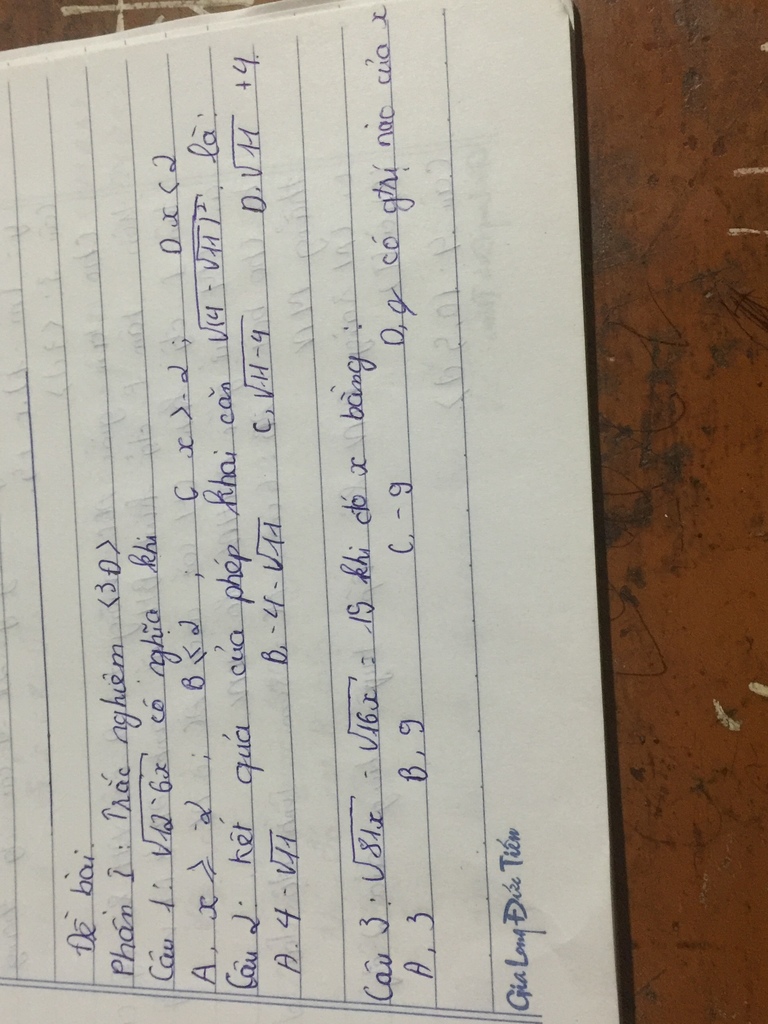 Đề bài
Phần I : Trắc nghiệm <3Đ>
Câu 1: √12-6x có nghĩa khi
A, x ≥ -2 ; B ≤ 2 ; C x > -2 ; D x < 2
Câu 2: kết quả của phép khai căn √(4-√11)² là:
A. 4-√11 B, -4-√11 C, √11-4 D. √11 +4
Câu 3: √81x - √16x = 15 khi đó x bằng:
A, 3 B, 9 C, -9 D, có gtrị nào của x
Gia Long Đức Tiến